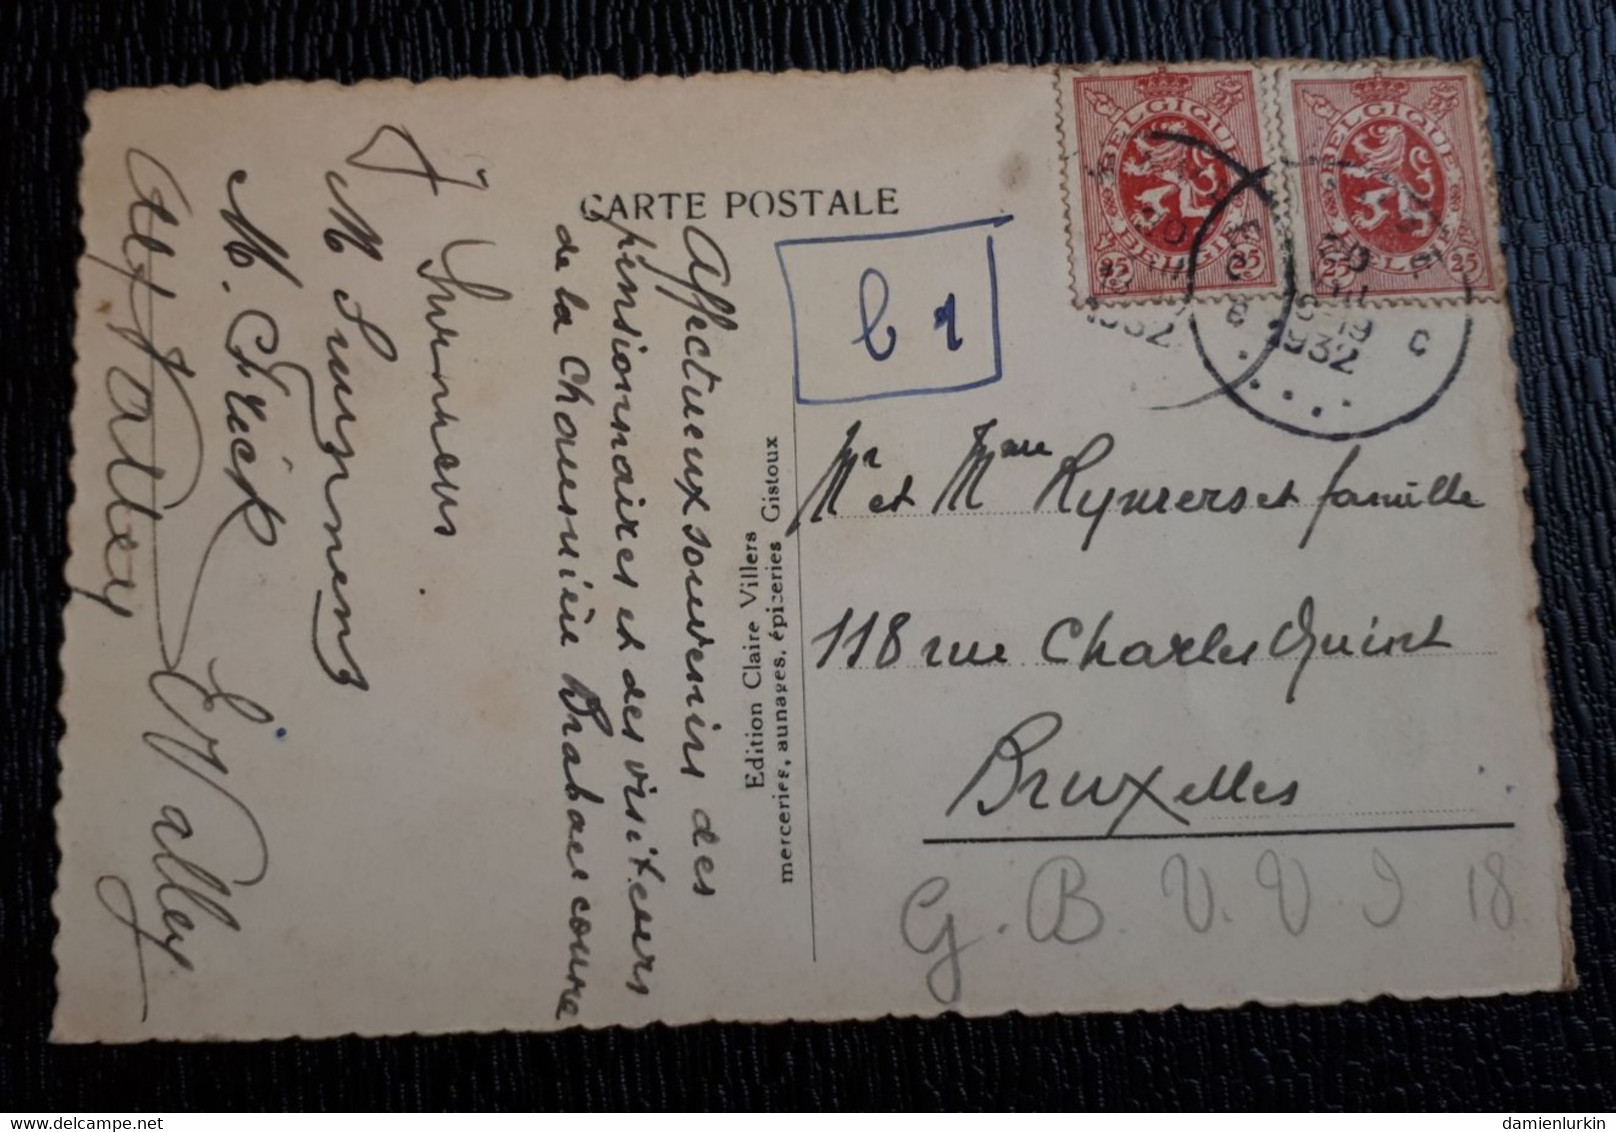 CARTE POSTALE
Affectueux souvenirs des
pensionnaires et des visiteurs
de la Chaumière Brabançonne
M. Suynnens
Alf Valley
E. Valley
Edition Claire Villers
merceries, aunages, épiceries Gistoux
b 1
BELGIQUE
BELGIE
25 25
BELGIQUE
BELGIE
25 25
1932
1932
B C
Mr et Mme Rymers et famille
118 rue Charles Quint
Bruxelles
G. B. V. V. I 18
damienlurkin